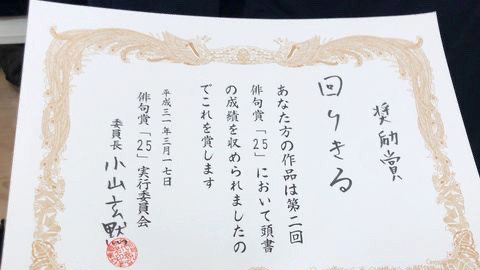 奨励賞
回りきる
あなた方の作品は第二回
俳句賞「25」において頭書
の成績を収められましたの
でこれを賞します
平成三一年三月一七日
俳句賞「25」実行委員会
委員長 小山玄黙